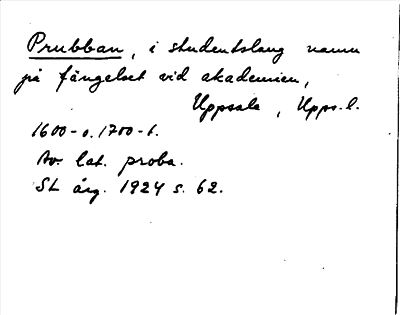 Prubban, i studentslang namn
på fängelset vid akademien,
Uppsala, Upps. l.
1600- o. 1700-t.
Av lat. proba.
SL årg. 1924 s. 62.